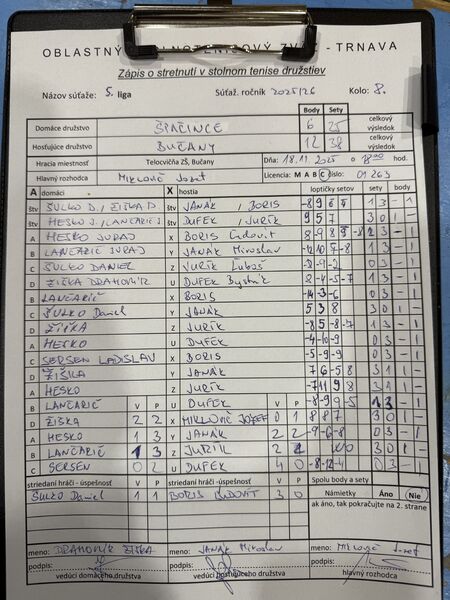 OBLASTNÝ STOLNOTENISOVÝ ZVÄZ - TRNAVA
Zápis o stretnutí v stolnom tenise družstiev
Názov súťaže: 5. liga Súťaž. ročník 2025/26 Kolo: 8.
Body Sety
Domáce družstvo ŠPAČINCE 6 25 celkový výsledok
Hosťujúce družstvo BUČANY 12 38 celkový výsledok
Hracia miestnosť Telocvičňa ZŠ, Bučany Dňa: 18.11.2025 o 18:00 hod.
Hlavný rozhodca MIKLOVIČ Jozef Licencia: M A B C číslo: 01263
A domáci X hostia loptičky setov sety body
štv ŠULKO D., ŽIŠKA D štv JANÁK / BORIS 1 3 - 1
štv HESKO J., LANČARIČ J. štv DUFEK / JURÍK 9 5 7 3 0 1 -
A HESKO JURAJ X BORIS Ľudovít
B LANČARIČ JURAJ Y JANÁK Miroslav -12 10 -7 -8 1 3 - 1
C ŠULKO DANIEL Z JURÍK Ľuboš -8 -9 -2 0 3 - 1
D ŽIŠKA DRAHOMÍR U DUFEK 1 3 - 1
B LANČARIČ X BORIS -14 -3 -6 0 3 - 1
C ŠULKO Daniel Y JANÁK 5 3 8 3 0 1 -
D ŽIŠKA Z JURÍK -8 5 -8 -7 1 3 - 1
A HESKO U DUFEK -4 -10 -9 0 3 - 1
C SERSEN LADISLAV X BORIS -5 -9 -9 0 3 - 1
D ŽIŠKA Y JANÁK 7 6 -5 8 3 1 1 -
A HESKO Z JURÍK -7 11 9 8 3 1 1 -
B LANČARIČ V P U DUFEK V P 1 3 - 1
D ŽIŠKA 2 2 X MIKLOVIČ JOZEF 0 1 8 8 7 3 0 1 -
A HESKO 1 3 Y JANÁK 2 2 -9 -6 -8 0 3 - 1
B LANČARIČ 1 3 Z JURÍK 2 3 0 1 -
C SERSEN 0 2 U DUFEK 4 0 -8 -12 -4 0 3 - 1
striedaní hráči - úspešnosť striedaní hráči - úspešnosť Spolu body a sety
ŠULKO Daniel 1 1 BORIS ĽUDOVÍT 3 0 Námietky Áno Nie
ak áno, tak pokračujte na 2. strane
meno: DRAHOMÍR ŽIŠKA meno: JANÁK Miroslav meno: MIKLOVIČ Jozef
podpis: podpis: podpis:
vedúci domáceho družstva vedúci hosťujúceho družstva hlavný rozhodca